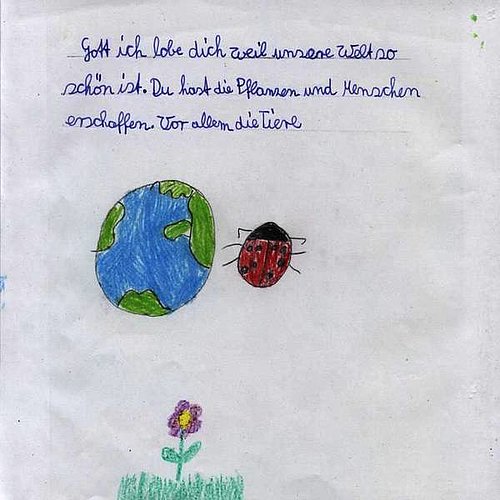 Gott ich lobe dich weil unsere Welt so
schön ist. Du hast die Pflanzen und Menschen
erschaffen. Vor allem die Tiere